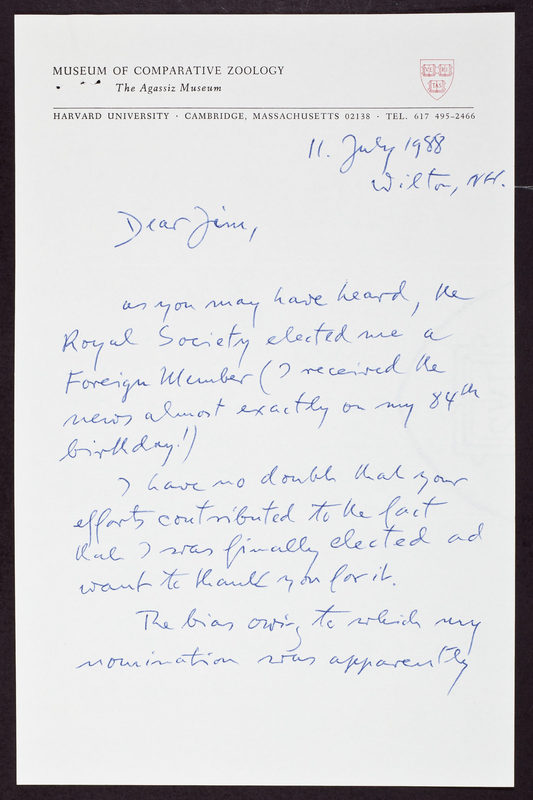 MUSEUM OF COMPARATIVE ZOOLOGY
The Agassiz Museum
VE RI
TAS
HARVARD UNIVERSITY · CAMBRIDGE, MASSACHUSETTS 02138 · TEL. 617 495-2466
11. July 1988
Wilton, NH.
Dear Jim,
as you may have heard, the
Royal Society elected me a
Foreign Member (I received the
news almost exactly on my 84th
birthday!)
I have no doubt that your
efforts contributed to the fact
that I was finally elected ad
want to thank you for it.
The bias owing to which my
nomination was apparently